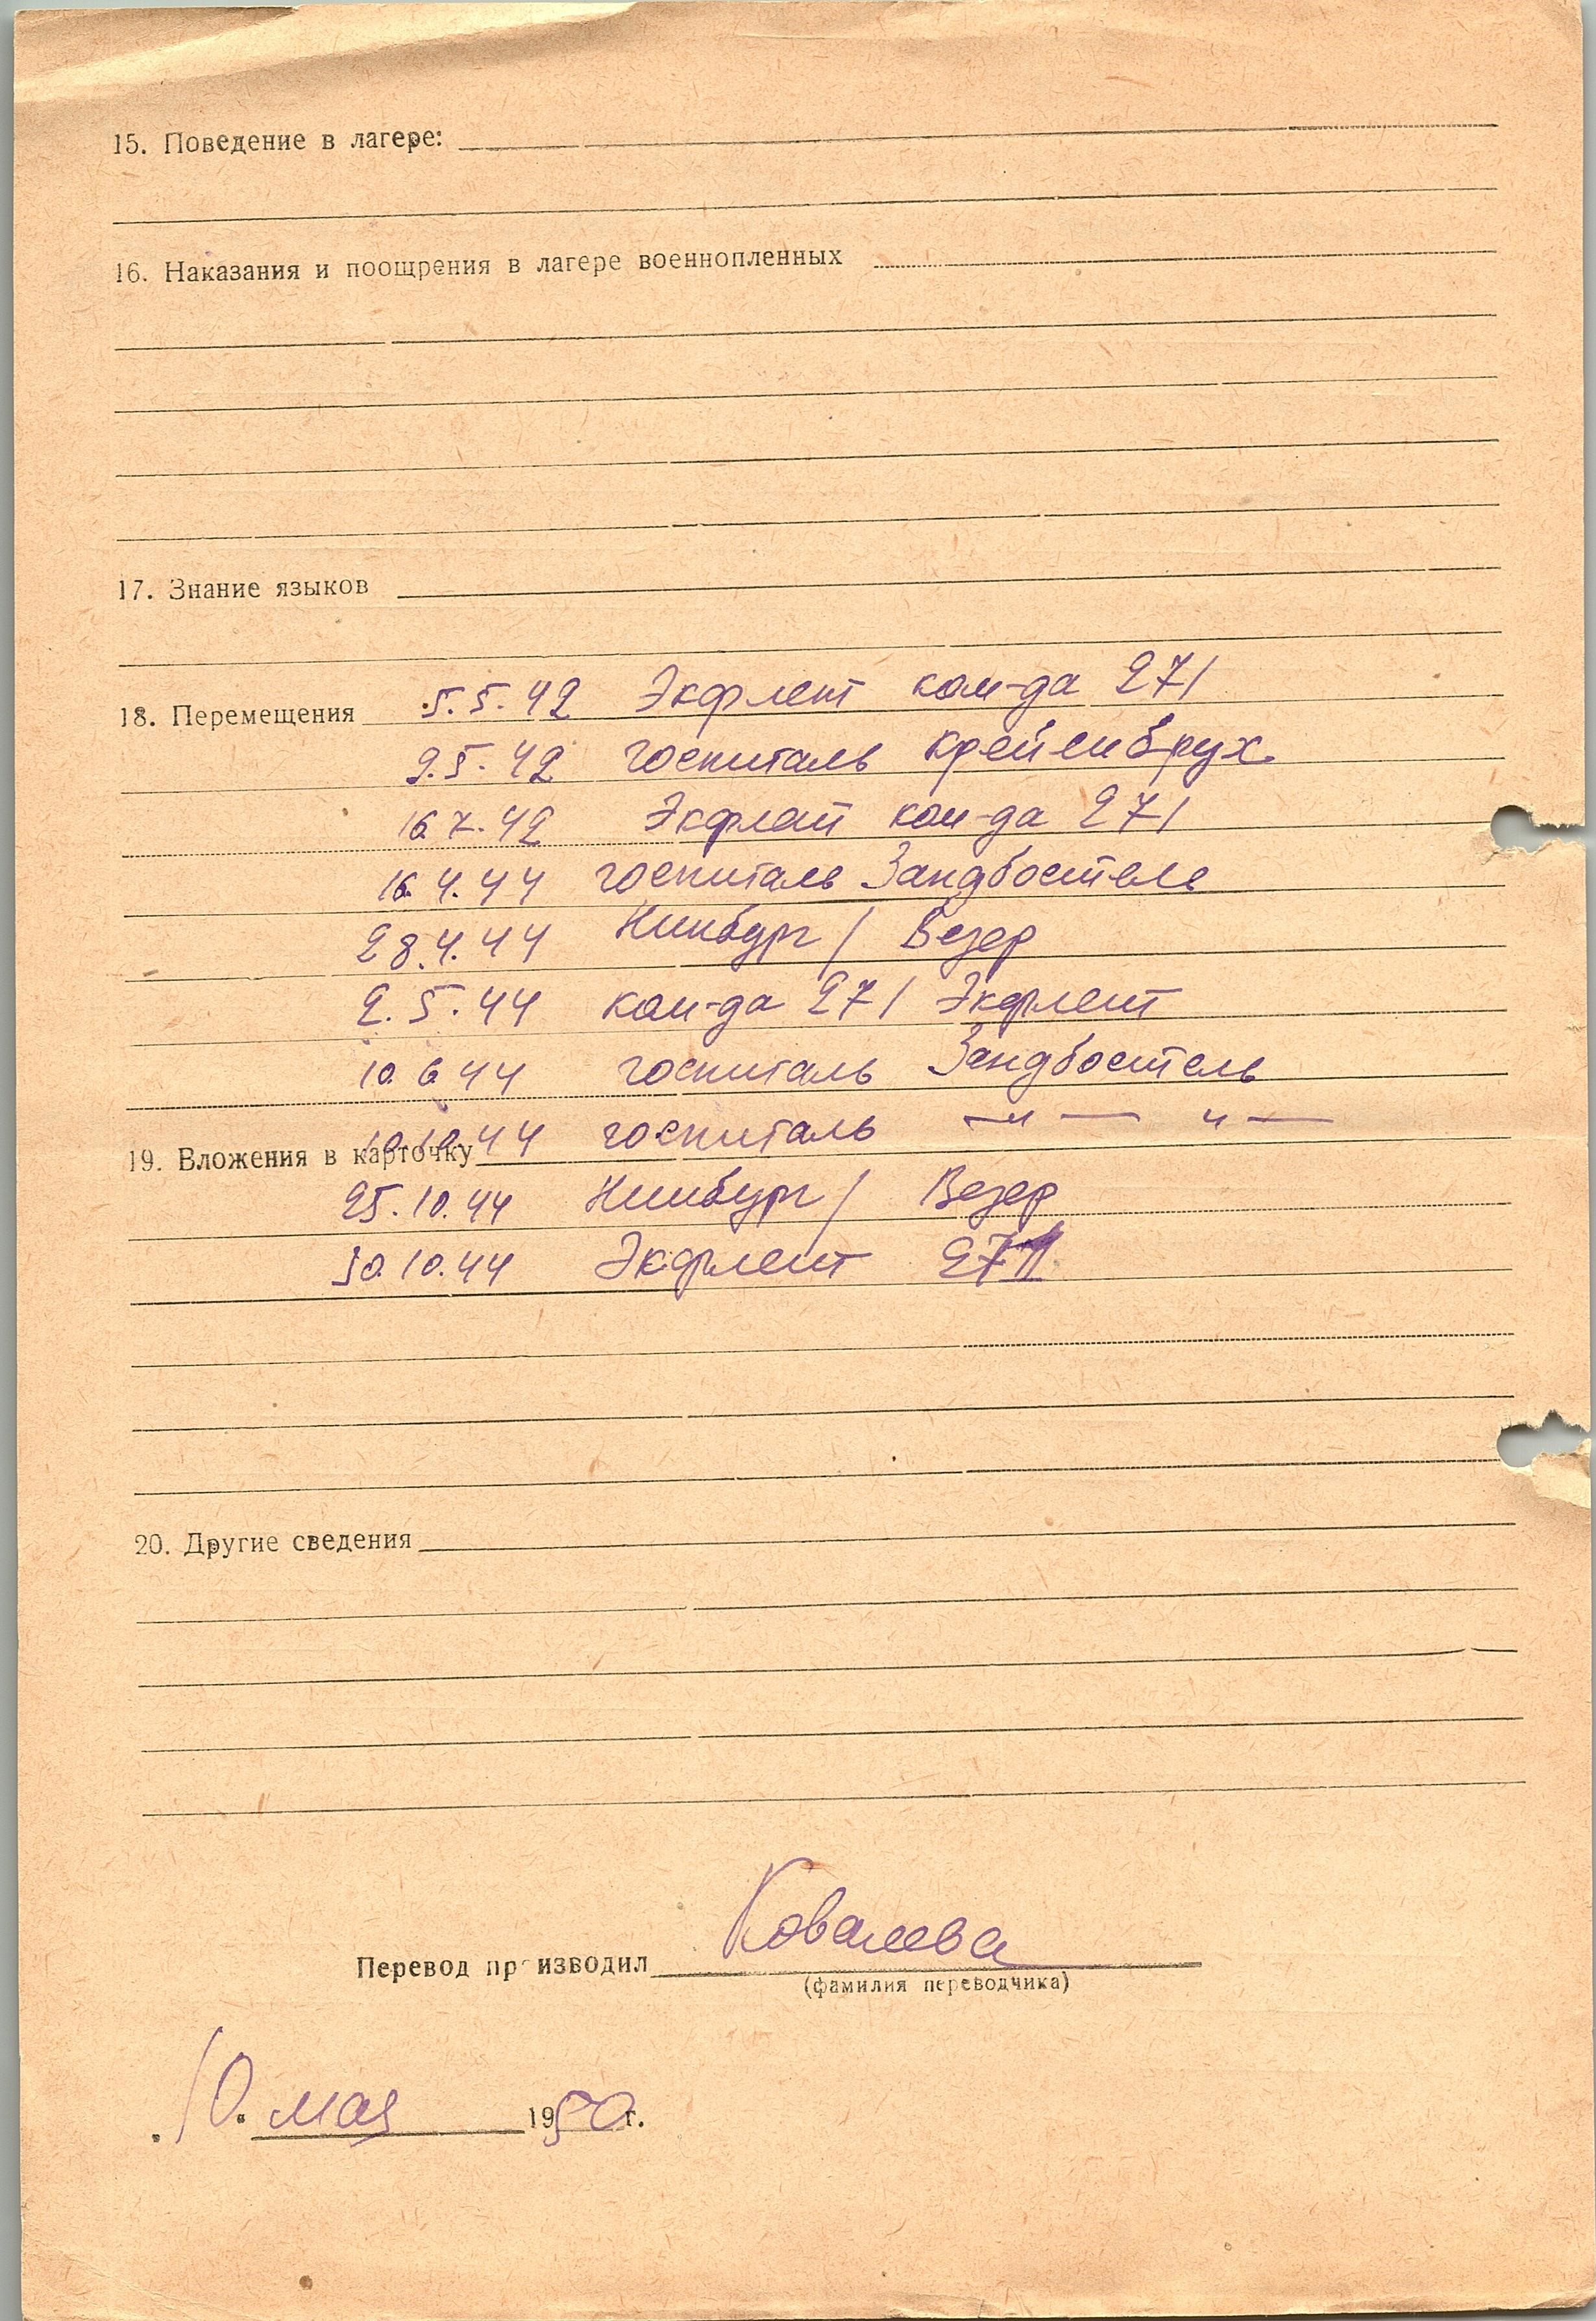 15. Поведение в лагере:
16. Наказания и поощрения в лагере военнопленных
17. Знание языков
18. Перемещения 5.5.42 Экфлент ком-да 271
9.5.42 госпиталь Крейенбрух
16.7.42 Экфлет ком-да 271
16.4.44 госпиталь Зандбостель
28.4.44 Нинбург / Везер
2.5.44 ком-да 271 Экфлент
10.6.44 госпиталь Зандбостель
10.10.44 госпиталь —"— "—
19. Вложения в карточку
25.10.44 Нинбург / Везер
30.10.44 Экфлент 271
20. Другие сведения
Перевод производил Ковалева
(фамилия переводчика)
10. мая 1950 г.